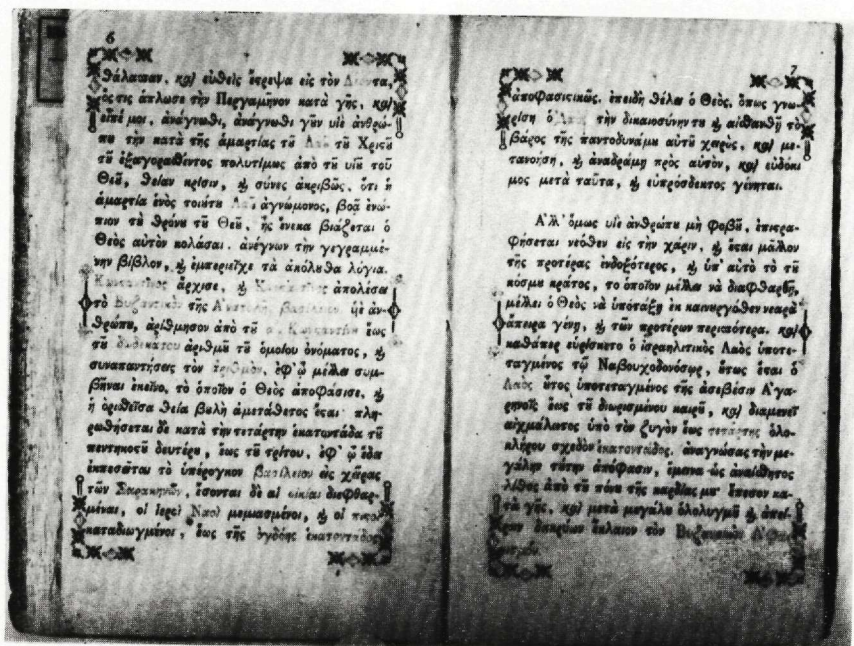 6
θάλασσαν, καὶ εὐθεὶς ἔτρεψα εἰς τὸν Λέοντα,
ὅς τις ἅπλωσε τὴν Περγαμηνον κατὰ γῆς, καὶ
εἶπέ μοι, ἀνάγνωθι, ἀνάγνωθι γῦν υἱὲ ἀνθρώ-
πυ τὴν κατὰ τῆς ἁμαρτίας τῦ Λαῦ τῦ Χριςῦ
τῦ ἐξαγορασθέντος πολυτίμως ἀπὸ τῦ υἱῦ τοῦ
Θεῦ, θείαν κρίσιν, καὶ σύνες ἀκριβῶς, ὅτι ἡ
ἁμαρτία ἑνὸς τοιύτυ Λαῦ ἀγνώμονος, βοᾷ ἐνώ-
πιον τῦ θρόνυ τῦ Θεῦ, ἧς ἕνεκα βιάζεται ὁ
Θεὸς αὐτὸν κολάσαι. ἀνέγνων τὴν γεγραμμέ-
νην βίβλον, καὶ ἐμπεριεῖχε τὰ ἀκόλυθα λόγια.
Κωνςαντῖνος ἄρχισε, καὶ Κωνςαντῖνος ἀπολέσει
τὸ Βυζαντικὸν τῆς Ἀνατολῆς βασίλειον. ὑιὲ ἀν-
θρώπυ, ἀρίθμησον ἀπὸ τῦ Κωνςαντίνυ ἕως
τῦ δωδεκάτυ ἀριθμῦ τῦ ὁμοίυ ὀνόματος, καὶ
συναπαντήσεις τὸν ἀριθμὸν, ἐφ' ᾧ μέλλει συμ-
βῆναι ἐκεῖνο, τὸ ὁποῖον ὁ Θεὸς ἀποφάσισε, καὶ
ἡ ὁριθεῖσα θεία βυλὴ ἀμετάθετος ἔςαι· πλη-
ρωθήσεται δὲ κατὰ τὴν τετάρτην ἑκατοντάδα τῦ
πεντηκοςῦ δευτέρυ, ἕως τῦ τρίτυ, ἐφ' ᾧ ἔδα
ἐκπεσεῖται τὸ ὑπέρογκον βασίλειον εἰς χεῖρας
τῶν Σαρακηνῶν, ἔσονται δὲ αἱ οἰκίαι διεφθαρ-
μέναι, οἱ ἱεροὶ Ναοὶ μεμιασμένοι, καὶ οἱ πιςοὶ
καταδιωγμένοι, ἕως τῆς ὀγδόης ἑκατοντάδος
7
ἀποφασιςικῶς, ἐπειδὴ θέλει ὁ Θεὸς, ὅπως γνω-
ρίση ὁ Λαὸς τὴν δικαιοσύνην τυ καὶ αἰσθανθῇ τὸ
βάρος τῆς παντοδυνάμυ αὐτῦ χειρὸς, καὶ με-
τανοήση, καὶ ἀναδράμη πρὸς αὐτὸν, καὶ εὐδόκι
μος μετὰ ταῦτα, καὶ εὐπρόσδεκτος γένηται.
Ἀλλ' ὅμως υἱὲ ἀνθρώπυ μὴ φοβῦ, ἐπιςρα-
φήσεται νεόθεν εἰς τὴν χάριν, καὶ ἔςαι μᾶλλον
τῆς προτέρας ἐνδοξότερος, καὶ ὑπ' αὐτὸ τὸ τῦ
κόσμυ κράτος, τὸ ὁποῖον μέλλει νὰ διαφθαρθῇ,
μέλλει ὁ Θεὸς νὰ ὑπόταξη ἐκ καινυργόθεν νεαρὰ
ἄπειρα γένη, καὶ τῶν προτέρων περισσότερα. καὶ
καθάπερ εὑρίσκετο ὁ ἰσραηλιτικὸς Λαὸς ὑποτε-
ταγμένος τῷ Ναβουχοδονόσωρ, ὕτως ἔςαι ὁ
Λαὸς ὗτος ὑποτεταγμένος τῆς ἀσεβέσιν Ἀγα-
ρηνοῖς ἕως τῦ διωρισμένου καιρῦ, καὶ διαμενεῖ
αἰχμάλωτος ὑπὸ τὸν ζυγὸν ἕως τετάρτης ὁλο-
κλήρου σχεδὸν ἑκατοντάδος. ἀναγνώσας τὴν με-
γάλην ταύτην ἀπόφασιν, ἔμεινα ὡς ἀναίσθητος
λίθος ἀπὸ τῦ πόνυ τῆς καρδίας μυ· ἔπεσον κα-
τὰ γῆς, καὶ μετὰ μεγάλυ ὀλολυγμῦ καὶ ἀπεί-
ρων δακρύων ἔκλαιον τὸν